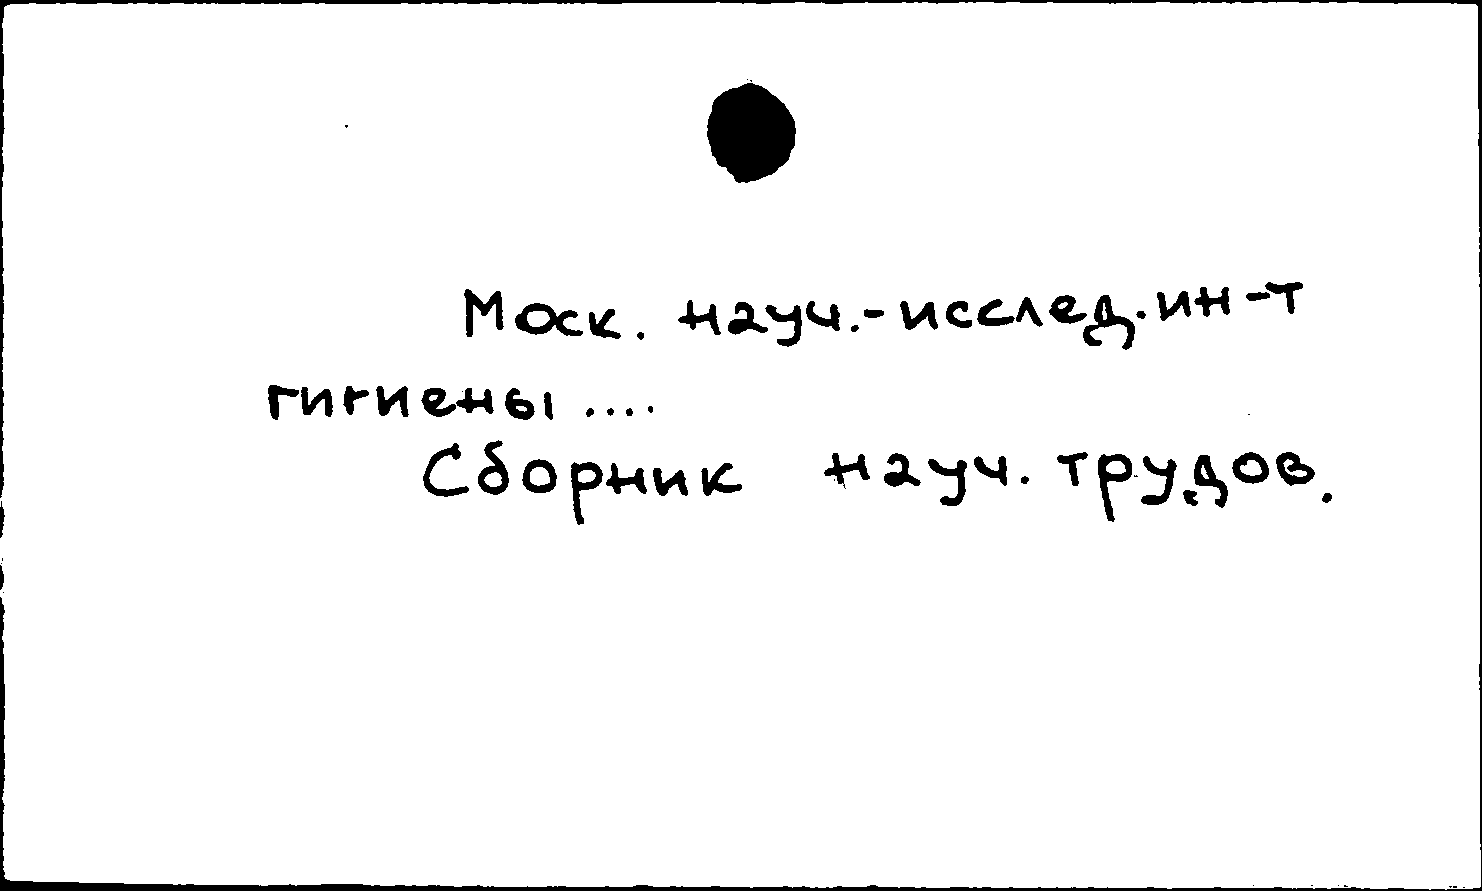 Моск. науч.-исслед. ин-т
гигиены ....
Сборник науч. трудов.